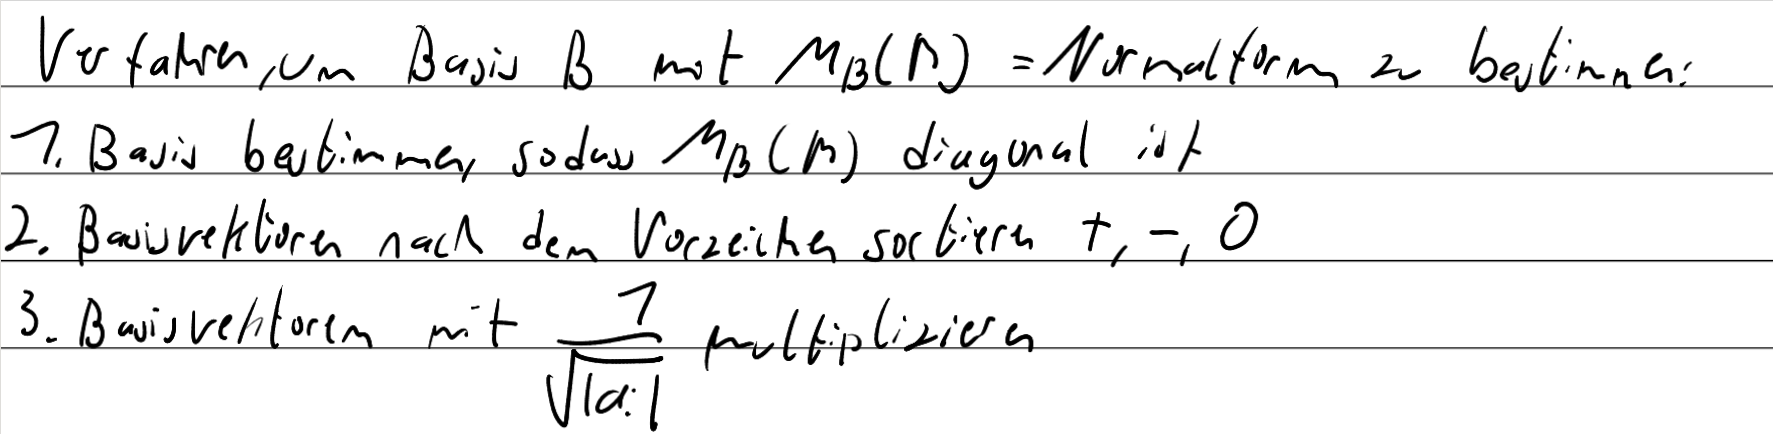 Verfahren, um Basis B mit M_B(β) = Normalform zu bestimmen:
1. Basis bestimmen, sodass M_B(β) diagonal ist
2. Basisvektoren nach dem Vorzeichen sortieren +, -, 0
3. Basisvektoren mit 1/√|α_i| multiplizieren